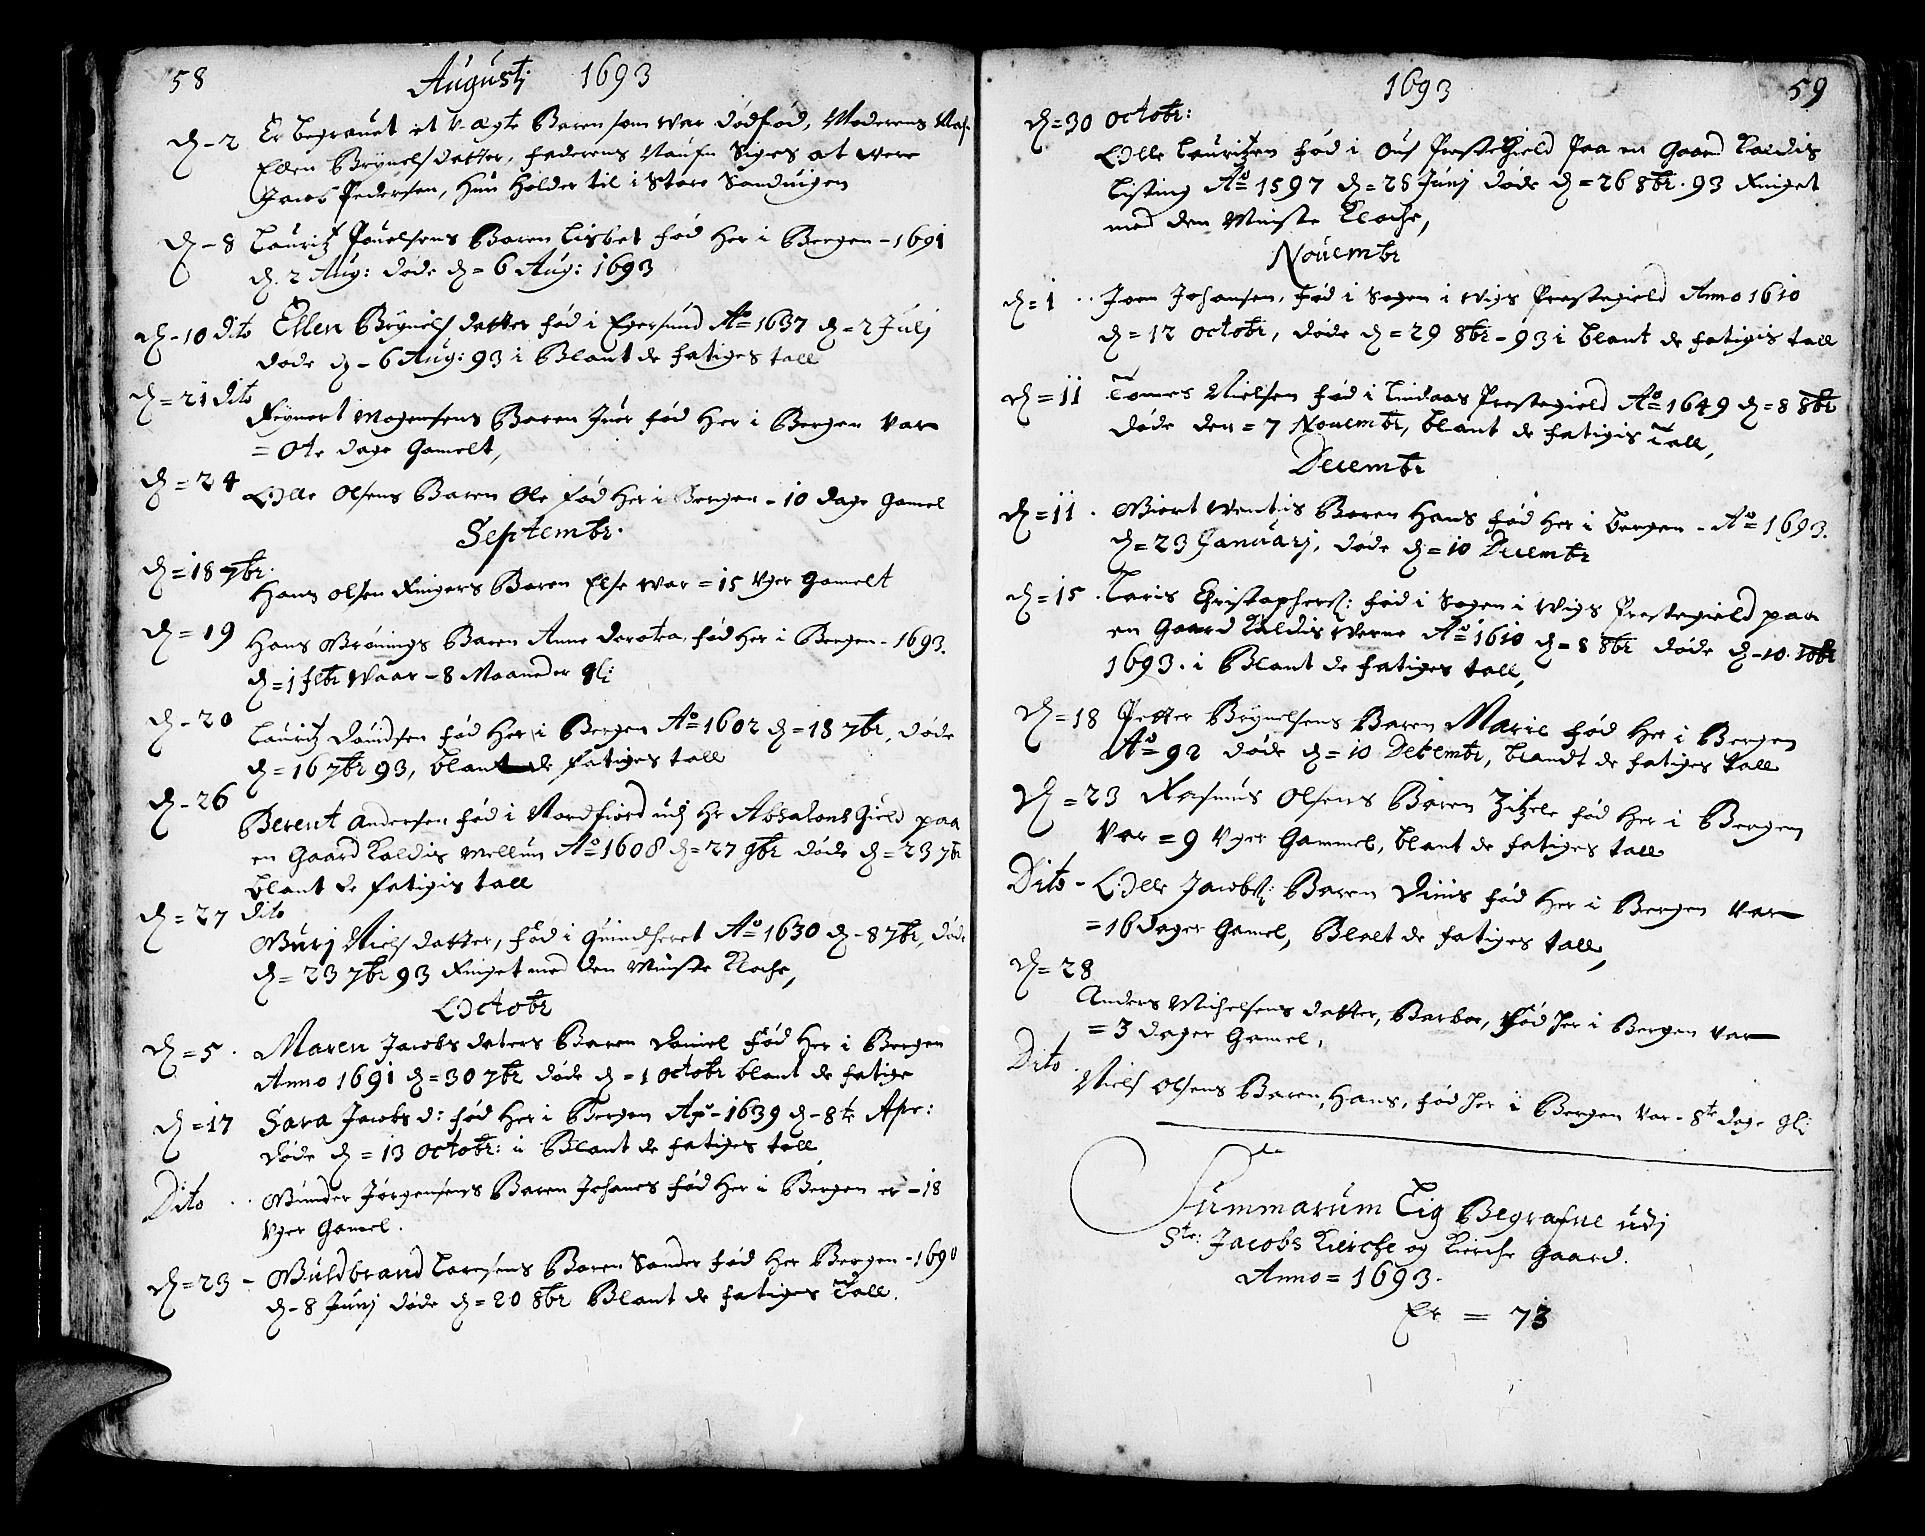 58 Augustj 1693
D - 2 Er begrauet et V-ægte Baren som war dødfød, Moderens Naf.
Ellen Brynelsdatter, faderens Naufn Siges at were
Jacob Pedersen, hun holder til i Store Sanduigen
D - 8 Lauritz Pouelsens Baren Lisbet fød her i Bergen - 1691
D. 2 Aug: døde D = 6 Aug: 1693
D - 10 Dito Ellen Brynels datter fød i Egersund Ao 1637 D = 2 Julj
døde D - 6 Aug: 93 i Blant de fatiges tall
D = 21 Dito
Reynert Mogensens Baren Iuer fød her i Bergen Var
= Ote dage Gamelt,
D = 24 Olle Olsens Baren Ole fød her i Bergen - 10 dage Gamel
Septembr.
D = 18 7br.
Hans Olsen Ringers Baren Else War = 15 Vger Gamelt
D = 19 Hans Brønings Baren Anne dorotea, fød her i Bergen - 1693.
D = 1 febr Waar - 8 Maaneder gli
D - 20 Lauritz Dauidsen fød her i Bergen Ao 1602 D = 18 7br, døde
D = 16 7br 93, blant de fatiges tall
D - 26
Berent Andersen fød i Nordfiord udj Hr Absalons Gield paa
en Gaard Kaldis Mellum Ao 1608 D = 27 9br døde D = 23 7br
blant de fatigis tall
D = 27 Dito
Burj Niels datter, fød i Quindheret Ao 1630 D - 8 7br, døde
D = 23 7br 93 Ringet med den Minste Klocke,
Octobr
D = 5. Maren Jacobs daters Baren Daniel fød her i Bergen
Anno 1691 D = 30 7br døde D = 1 Octobr blant de fatige
D = 17 Sara Jacobs d: fød her i Bergen Ao - 1639 D - 8te Apr:
døde D = 13 Octobr: i Blant de fatiges tall
Dito . . Gunder Jørgensens Baren Johanes fød her i Bergen er - 18
Vger Gamel.
D = 23 - Guldbrand Laresens Baren Sander fød her Bergen - 1690
D - 8 Junj døde D = 20 8br Blant de fatiges Tall.
1693 59
D = 30 Octobr:
Olle Lauritzen fød i Ous Prestegield Paa en Gaard Kaldis
Listing Ao 1597 D = 28 Junj døde D = 26 8br. 93 Ringet
med den Minste Klocke,
Nouembr
D = 1 . . Joen Johansen, fød i Sogen i Wigs Prestegield Anno 1610
D = 12 Octobr, døde D = 29 8br - 93 i blant de fatigis tall
D = 11 Tomes Nielsen fød i Lindaas Prestegield Ao 1649 D = 8 8br
døde den = 7 Nouembr, blant de fatigis Tall,
Decembr
D = 11. Giert Wentis Baren Hans fød her i bergen - Ao 1693.
D = 23 Januarj, døde D = 10 Decembr
D = 15. Karis Christophers: fød i Sogen i Wigs Prestegield paa
en Gaard Kaldis Werne Ao 1610 D = 8 8br døde D - 10. 10br
1693. i Blant de fatiges tall,
D = 18 Petter Brynelsens Baren Marie fød her i Bergen
Ao 92 døde D = 10 Decembr, blandt de fatiges Tall
D = 23 Rasmus Olsens Baren Zitzele fød her i Bergen
Var = 9 Vger Gammel, blant de fatiges tall
Dito - Olle Jacobs: Baren Diniis fød her i Bergen Var
= 16 dager Gamel, Blalt de fatiges tall,
D = 28
Anders Michelsens datter, Barbor, fød her i Bergen var
= 3 dager Gamel,
Dito. Niels Olsens Baren, Hans, fød her i Bergen Var - 8te dage gli
Summarum Liig Begrafne udj
Ste: Jacobs Kierche og Kierche Gaard.
Anno = 1693.
Er = 73